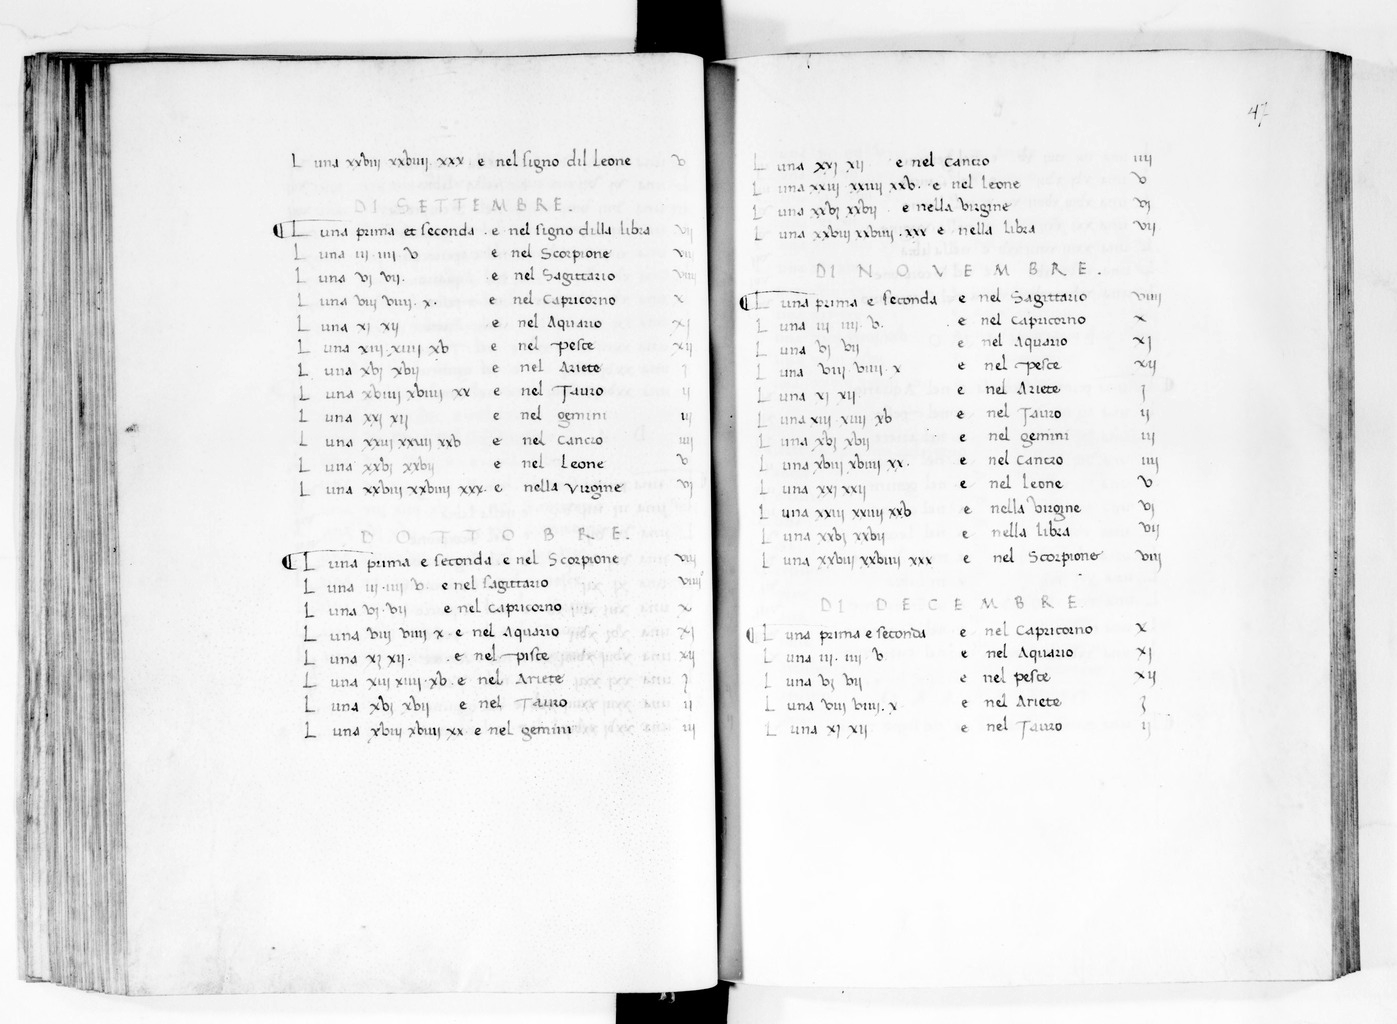 Luna xxviii xxviiii. xxx e nel signo dil Leone v
DI SETTEMBRE.
Luna prima et seconda . e nel signo dilla libra vii
Luna iii · iiii · v e nel Scorpione viii
Luna vi vii. e nel Sagittario viiii
Luna viii viiii . x . e nel Capricorno x
Luna xi xii e nel Aquario xi
Luna xiii xiiii xv e nel Pesce xii
Luna xvi xvii e nel Ariete i
Luna xviii xviiii xx e nel Tauro ii
Luna xxi xii e nel gemini iii
Luna xxiii xxiiii xxv e nel Cancro iiii
Luna xxvi xxvii e nel Leone v
Luna xxviii xxviiii xxx. e nella Virgine vi
DOTTOBRE.
Luna prima e seconda e nel Scorpione viii
Luna iii · iiii v. e nel sagittario viiii
Luna vi · vii e nel Capricorno x
Luna viii viiii x . e nel Aquario xi
Luna xi xii . . e nel pisce xii
Luna xiii xiiii · xv . e nel Ariete i
Luna xvi xvii e nel Tauro ii
Luna xviii xviiii xx e nel gemini iii
47
Luna xxi xii e nel Cancro iiii
Luna xxiii · xxiiii xxv. · e nel leone v
Luna xxvi xxvii e nella Virgine vi
Luna xxviii xxviiii . xxx e nella libra vii
DI NOVEMBRE.
Luna prima e seconda e nel Sagittario viiii
Luna iii iiii . v. e nel Capricorno x
Luna vi vii e nel Aquario xi
Luna viii · viiii . x e nel Pesce xii
Luna xi xii e nel Ariete i
Luna xiii . xiiii xv e nel Tauro ii
Luna xvi xvii e nel gemini iii
Luna xviii xviiii xx . e nel Cancro iiii
Luna xxi xxii e nel Leone v
Luna xxiii xxiiii xxv e nella Virgine vi
Luna xxvi xxvii e nella libra vii
Luna xxviii xxviiii xxx e nel Scorpione viii
DI DECEMBRE
Luna prima e seconda e nel Capricorno x
Luna iii . iiii v e nel Aquario xi
Luna vi vii e nel pesce xii
Luna viii viiii . x e nel Ariete i
Luna xi xii e nel Tauro ii